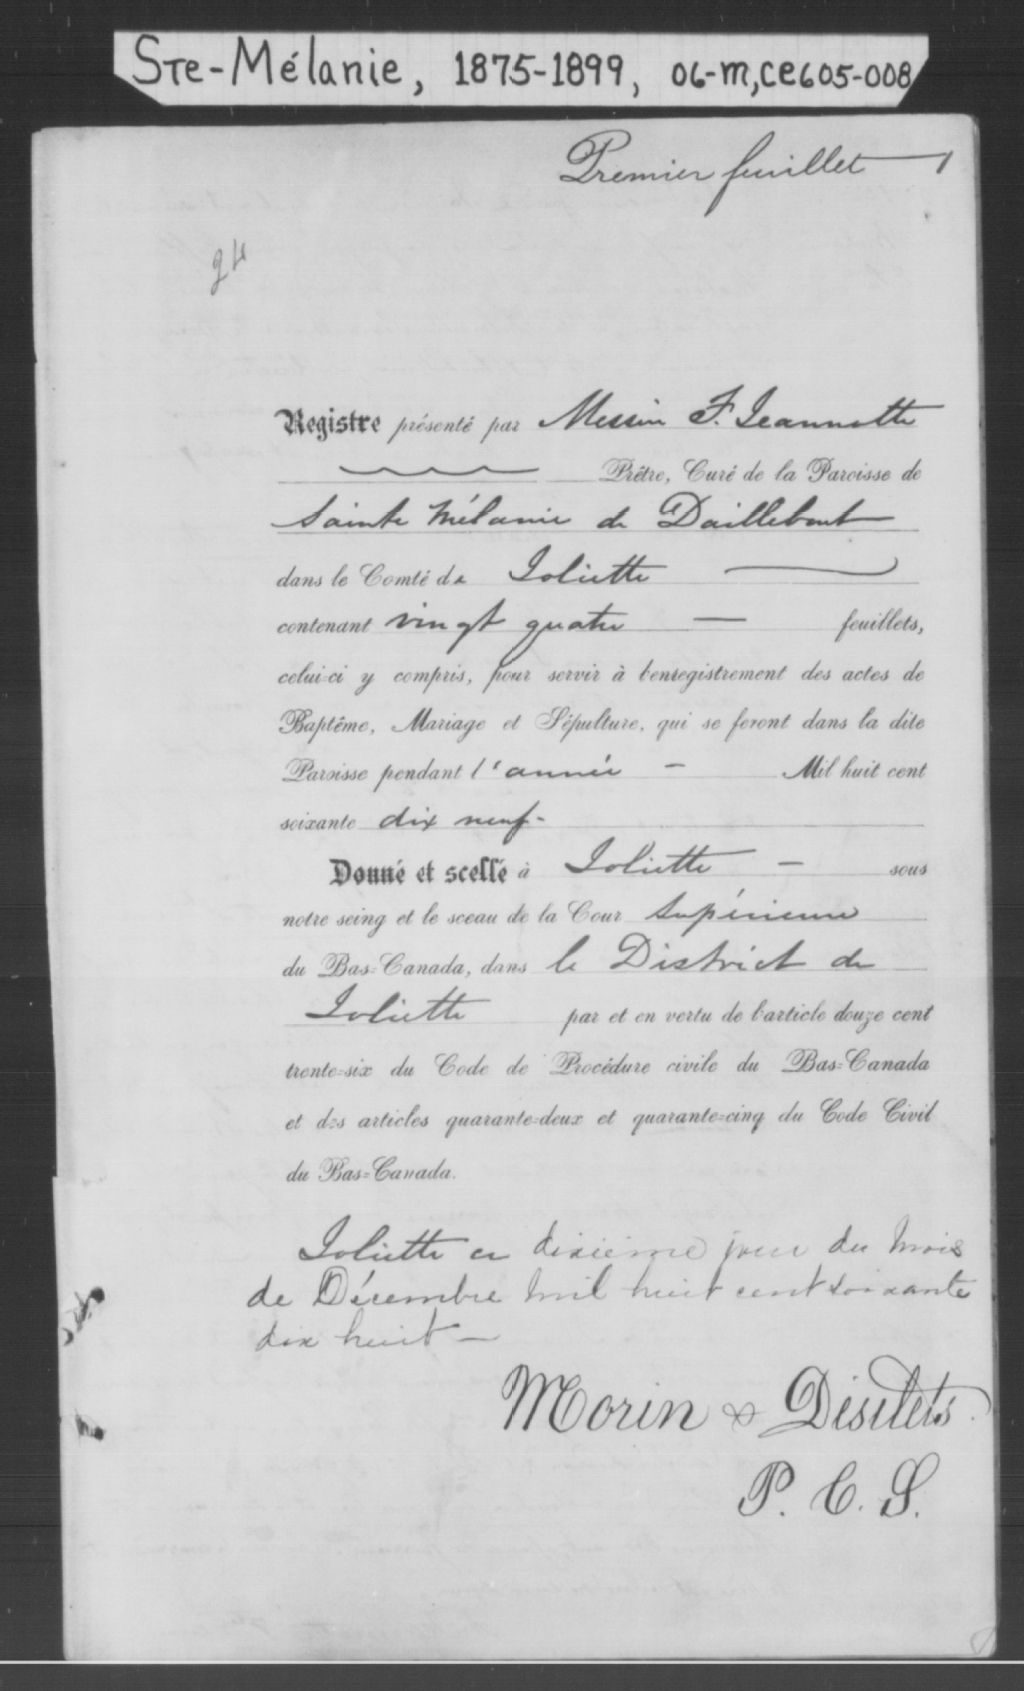 Ste-Mélanie, 1875-1899, 06-M,CE605-008
Premier feuillet 1
24
Registre présenté par Messire F. Jeannotte
Prêtre, Curé de la Paroisse de
Sainte Mélanie de Daillebout
dans le Comté de Joliette
contenant vingt quatre — feuillets,
celui-ci y compris, pour servir à l'enregistrement des actes de
Baptême, Mariage et Sépulture, qui se feront dans la dite
Paroisse pendant l'année - Mil huit cent
soixante dix neuf-
Donné et scellé à Joliette - sous
notre seing et le sceau de la Cour Supérieure
du Bas-Canada, dans le District de
Joliette par et en vertu de l'article douze cent
trente-six du Code de Procédure civile du Bas-Canada
et des articles quarante-deux et quarante-cinq du Code Civil
du Bas-Canada.
Joliette ce dixième jour du mois
de Décembre mil huit cent soixante
dix huit —
Morin & Désilets
P. C. S.